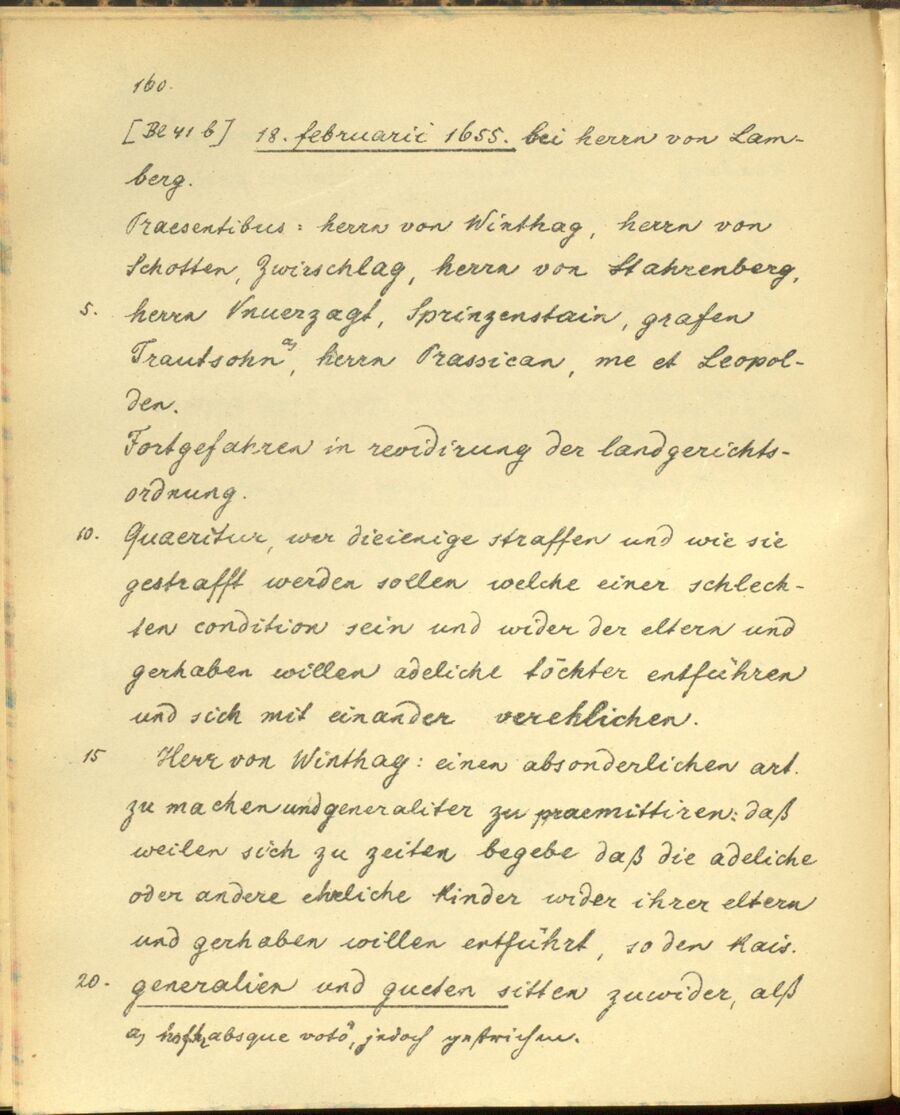 160.
[Bl 41 b] 18. februarii 1655. bei herrn von Lam-
berg.
Praesentibus: herrn von Winthag, herrn von
Schotten, Zwirschlag, herrn von Stahrenberg,
5. herrn Vnuerzagt, Sprinzenstain, grafen
Trautsohn a), herrn Prassican, me et Leopol-
den.
Fortgefahren in revidirung der landgerichts-
ordnung.
10. Quaeritur, wer dieienige straffen und wie sie
gestrafft werden sollen welche einer schlech-
ten condition sein und wider der eltern und
gerhaben willen adeliche töchter entführen
und sich mit einander verehlichen.
15 Herr von Winthag: einen absonderlichen art.
zu machen und generaliter zu praemittiren: daß
weilen sich zu zeiten begebe daß die adeliche
oder andere ehrliche kinder wider ihrer eltern
und gerhaben willen entführt, so den kais.
20. generalien und gueten sitten zuwider, alß
a) absque voto", jedoch gestrichen.